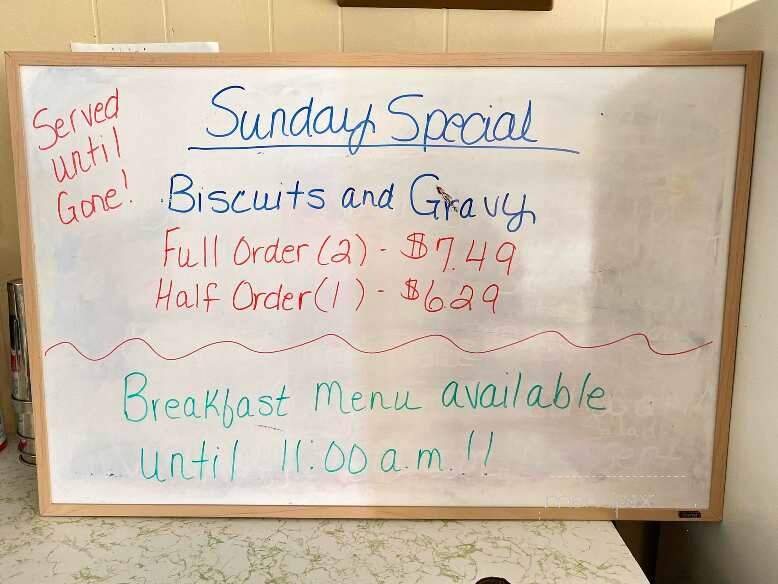 Served
until
Gone!
Sunday Special
Biscuits and Gravy
Full Order (2) - $7.49
Half Order (1) - $6.29
Breakfast menu available
until 11:00 a.m.!!